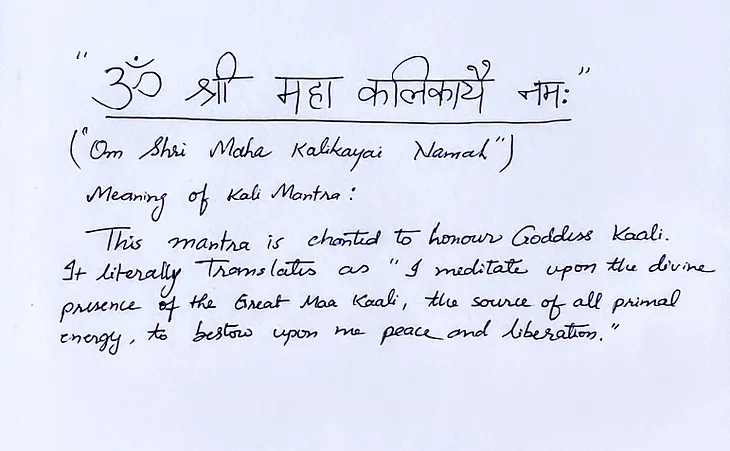 "ॐ श्री महा कलिकायै नमः"
("Om Shri Maha Kalikayai Namah")
Meaning of Kali Mantra:
This mantra is chanted to honour Goddess Kaali.
It literally Translates as "I meditate upon the divine
presence of the Great Maa Kaali, the source of all primal
energy, to bestow upon me peace and liberation."